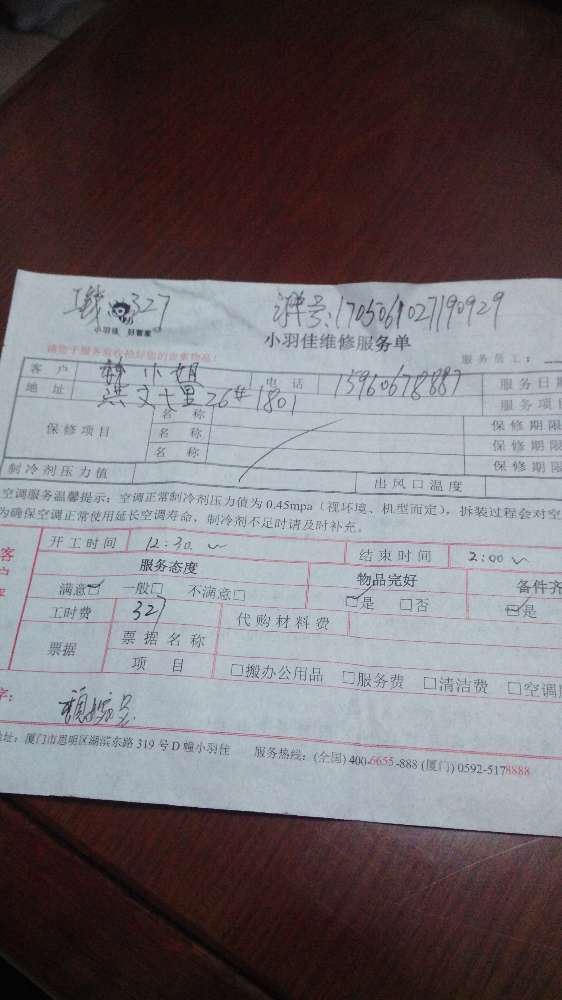 327 单号:1705061027190929
小羽佳 好管家
小羽佳维修服务单
请您于服务前收拾好您的贵重物品! 服务员工:
客户 小姐 电话 15960678887 服务日期
地址 洪文七里26# 1801 服务项目
保修项目 名称 保修期限
名称 保修期限
名称 保修期限
制冷剂压力值 出风口温度
空调服务温馨提示:空调正常制冷剂压力值为0.45mpa(视环境、机型而定),拆装过程会对空
为确保空调正常使用延长空调寿命,制冷剂不足时请及时补充。
开工时间 12:30 结束时间 2:00
客户 服务态度 物品完好 备件齐
满意☑ 一般□ 不满意□ ☑是 □否 ☑是
工时费 327 代购材料费
票据 票据名称
项目 □搬办公用品 □服务费 □清洁费 □空调
字:
地址:厦门市思明区湖滨东路319号D幢小羽佳 服务热线:(全国)400-6655-888 (厦门)0592-5178888